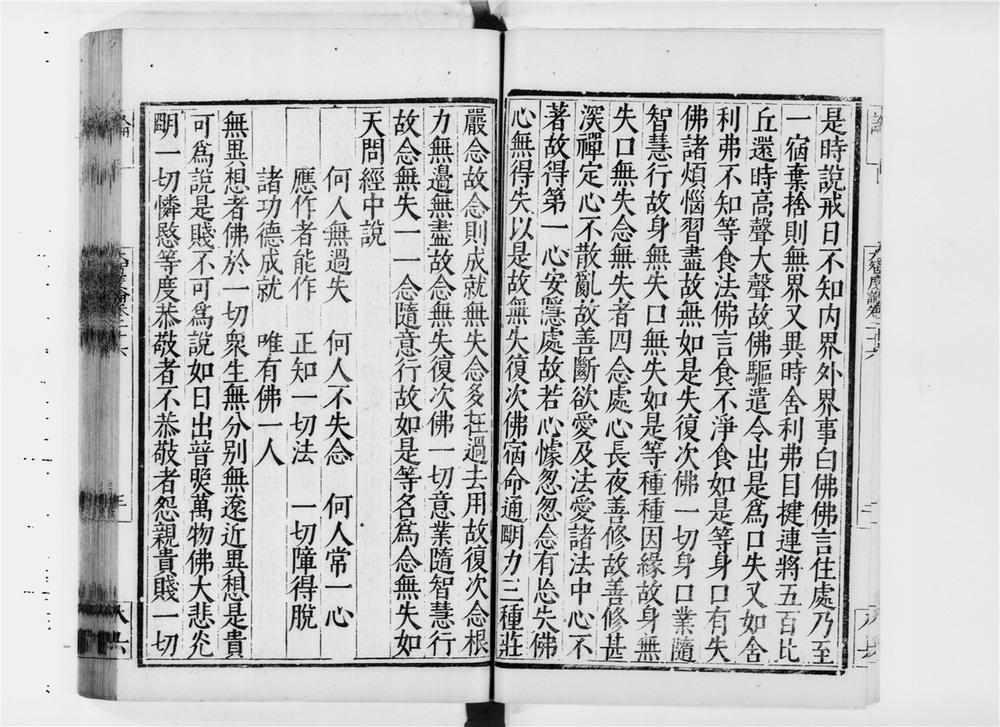 是時說戒日不知内界外界事白佛佛言住處乃至
一宿棄捨則無界又異時舍利弗目揵連將五百比
丘還時高聲大聲故佛驅遣令出是爲口失又如舍
利弗不知等食法佛言食不淨食如是等身口有失
佛諸煩惱習盡故無如是失復次佛一切身口業隨
智慧行故身無失口無失如是等種種因緣故身無
失口無失念無失者四念處心長夜善修故善修甚
深禪定心不散亂故善斷欲愛及法愛諸法中心不
著故得第一心安隱處故若心懅忽忽念有忘失佛
心無得失以是故無失復次佛宿命通明力三種莊
嚴念故念則成就無失念多在過去用故復次念根
力無邊無盡故念無失復次佛一切意業隨智慧行
故念無失一一念隨意行故如是等名爲念無失如
天問經中說
何人無過失 何人不失念 何人常一心
應作者能作 正知一切法 一切障得脫
諸功德成就 唯有佛一人
無異想者佛於一切衆生無分别無遠近異想是貴
可爲說是賤不可爲說如日出普照萬物佛大悲光
明一切憐愍等度恭敬者不恭敬者怨親貴賤一切